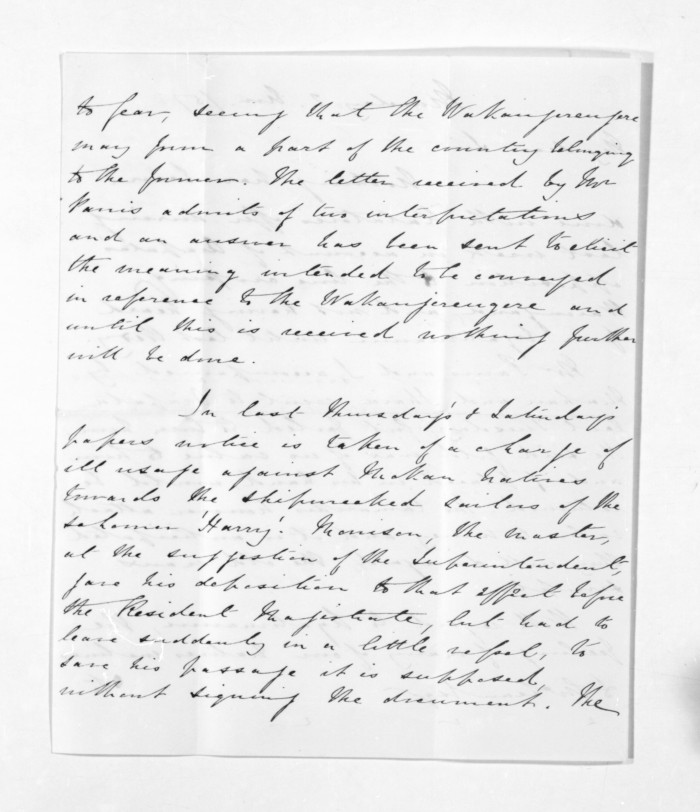 to fear, seeing that the Wakangerengere
may form a part of the country belonging
to the former. The letter received by Mr
Parris admits of two interpretations
and an answer has been sent to elicit
the meaning intended to be conveyed
in reference to the Wakangerengere and
until this is received nothing further
will be done.
In last Thursday's & Saturday's
papers notice is taken of a charge of
ill usage against Mokau Natives
towards the shipwrecked sailors of the
schooner 'Harry'. Morrison, the master,
at the suggestion of the Superintendent,
gave his deposition to that effect before
the Resident Magistrate, but had to
leave suddenly in a little vessel, to
save his passage it is supposed,
without signing the document. The